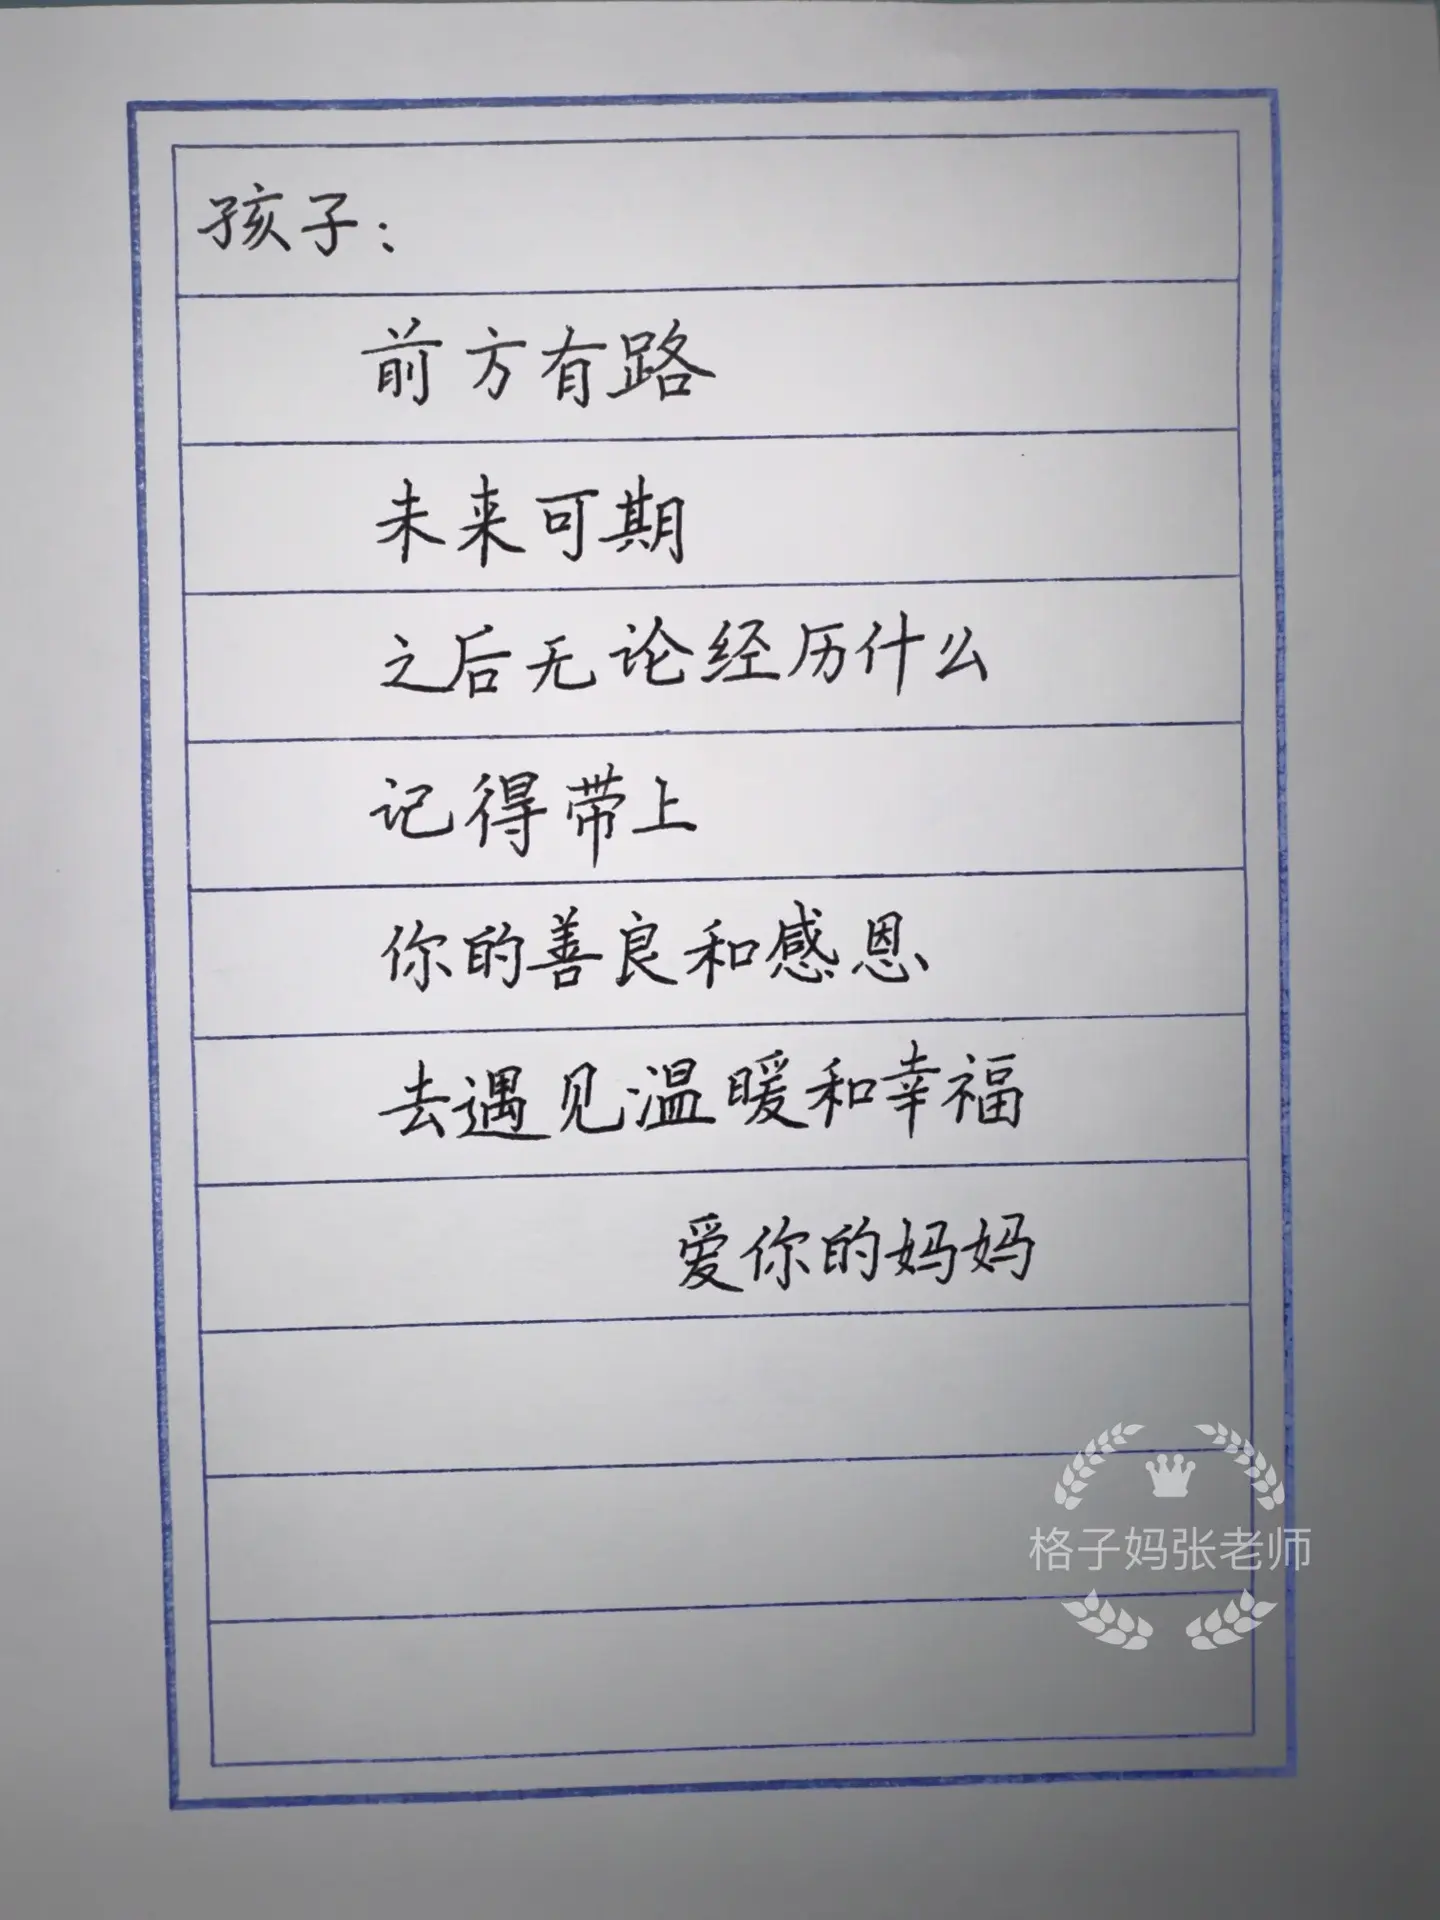 孩子：
前方有路
未来可期
之后无论经历什么
记得带上
你的善良和感恩
去遇见温暖和幸福
爱你的妈妈
格子妈张老师